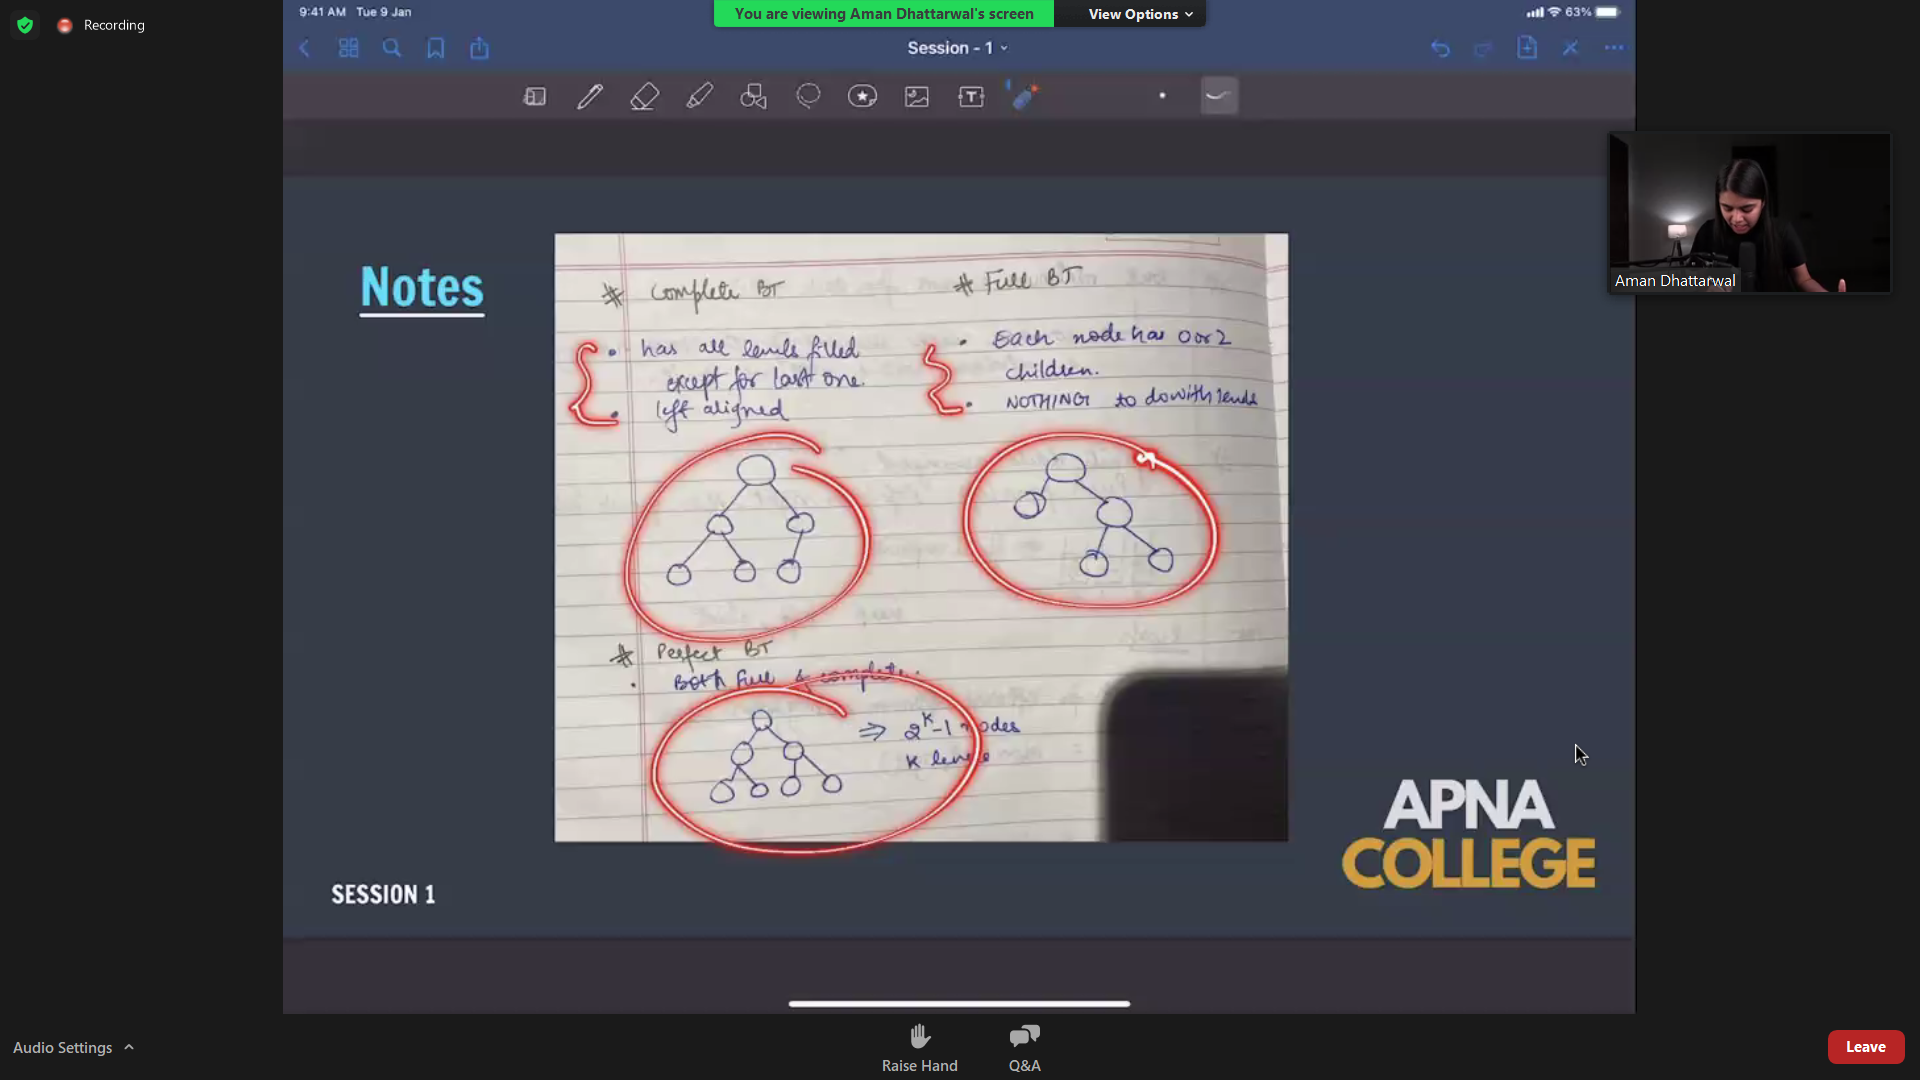 9:41 AM Tue 9 Jan
You are viewing Aman Dhattarwal's screen
View Options
63%
Recording
Session - 1
Aman Dhattarwal
Notes
# Complete BT
• has all levels filled
except for last one.
• left aligned
# Full BT
• Each node has 0 or 2
children.
• NOTHING to do with levels
# Perfect BT
• Both Full & complete.
⇒ 2^k-1 nodes
K levels
APNA
COLLEGE
SESSION 1
Audio Settings
Raise Hand
Q&A
Leave